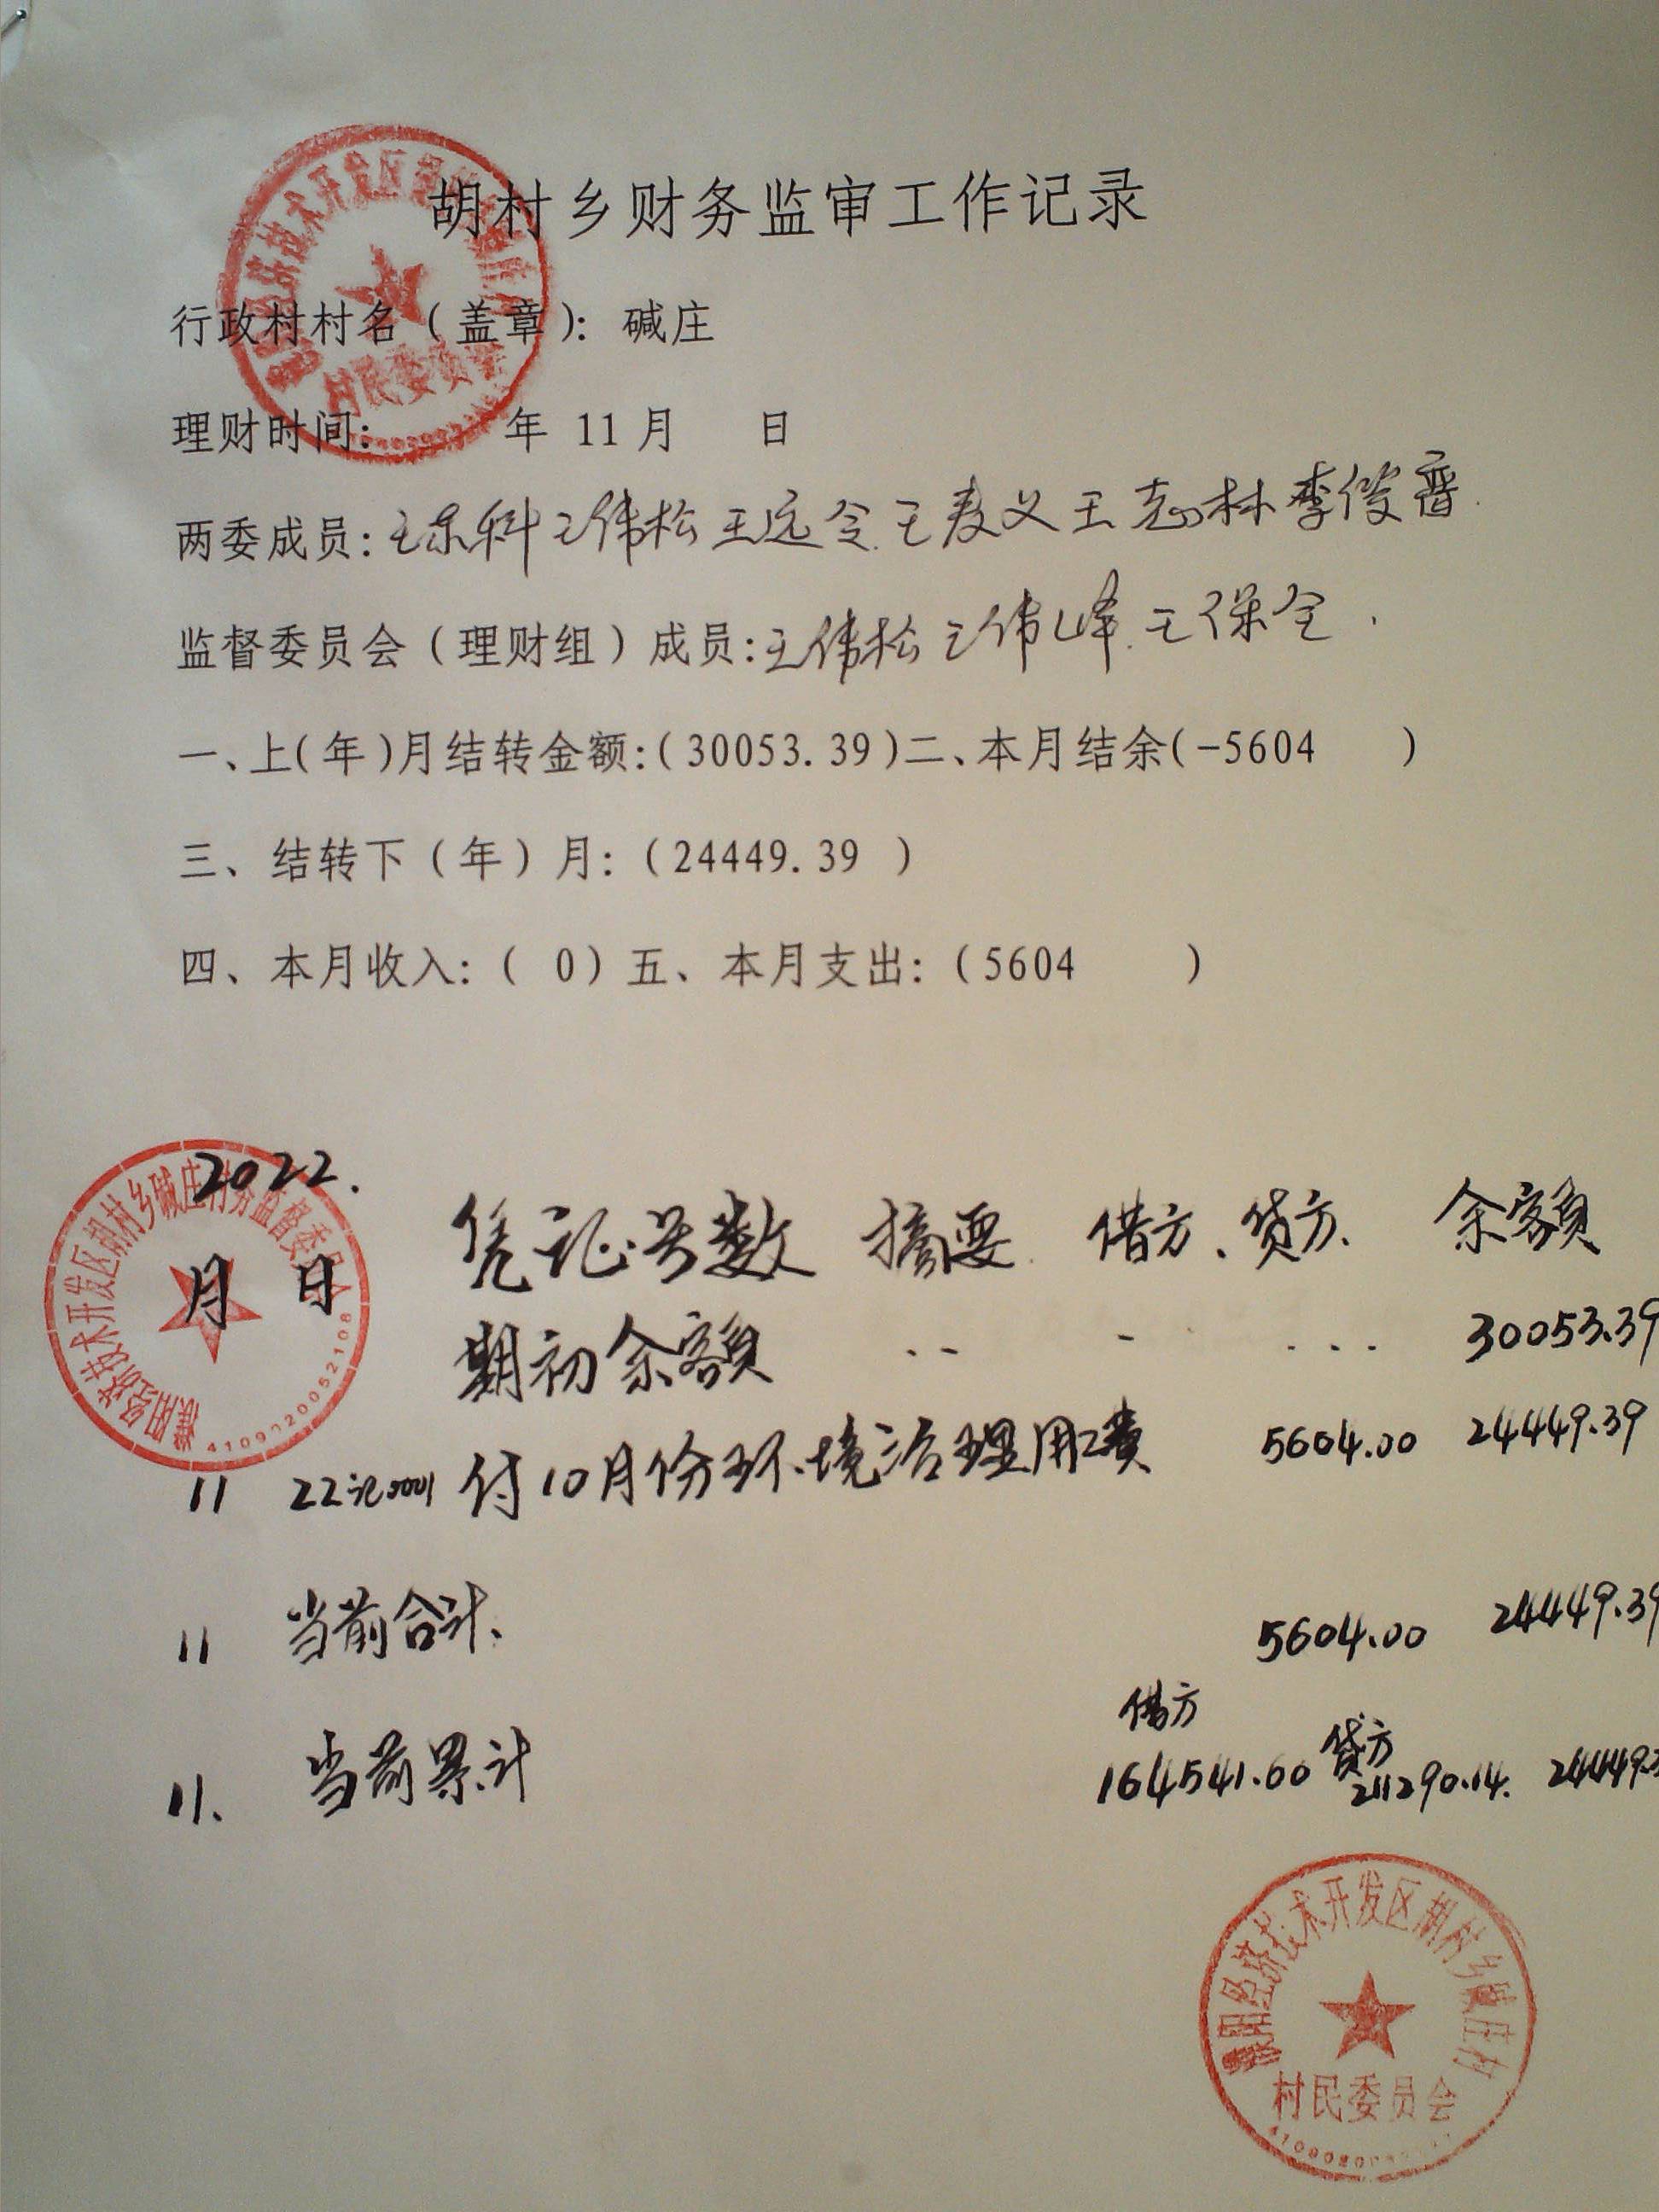 胡村乡财务监审工作记录
行政村村名（盖章）：碱庄
理财时间： 年 11 月 日
两委成员：王东科 王伟松 王远令 王麦义 王志林 李俊晋
监督委员会（理财组）成员：王伟松 王伟峰 王保全
一、上(年)月结转金额：(30053.39)二、本月结余(-5604 )
三、结转下（年）月：（24449.39 ）
四、本月收入：（ 0）五、本月支出：（5604 ）
2022.
月 日 凭证号数 摘要 借方、贷方、余额
期初余额 30053.39
11 22记0001 付10月份环境治理用费 5604.00 24449.39
11 当前合计、 5604.00 24449.39
借方 贷方
11. 当前累计 164541.60 211290.14. 24449.3
濮阳经济技术开发区胡村乡碱庄村务监督委员会
4109020052108
濮阳经济技术开发区胡村乡碱庄村
村民委员会